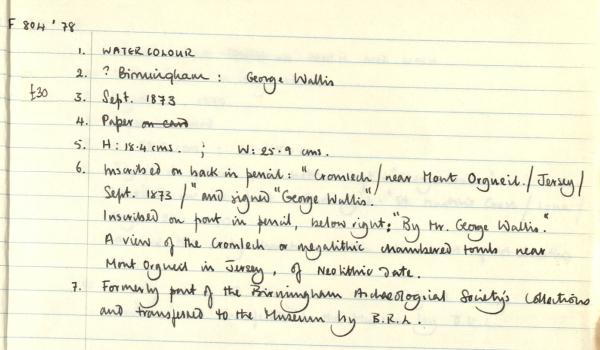 F 804'78
1. WATERCOLOUR
2. ? Birmingham : George Wallis
£30 3. Sept. 1873
4. Paper on card
5. H: 18.4 cms. ; W: 25.9 cms.
6. Inscribed on back in pencil: "Cromlech / near Mont Orgueil. / Jersey /
Sept. 1873 /" and signed "George Wallis".
Inscribed on front in pencil, below right: "By Mr. George Wallis."
A view of the Cromlech or megalithic chambered tomb near
Mont Orgueil in Jersey, of Neolithic Date.
7. Formerly part of the Birmingham Archaeological Society's Collections
and transferred to the Museum by B.R.L.